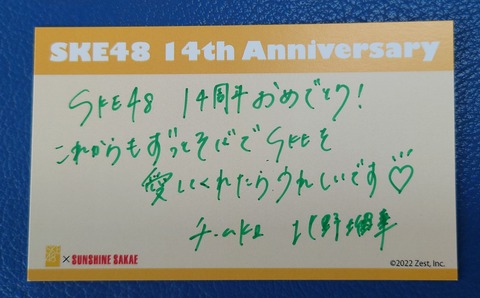 SKE48 14th Anniversary
SKE48 14周年おめでとう!
これからもずっとそばでSKEを
愛してくれたらうれしいです♡
TeamKII 北野瑠華
SKE48 × SUNSHINE SAKAE
©2022 Zest, Inc.